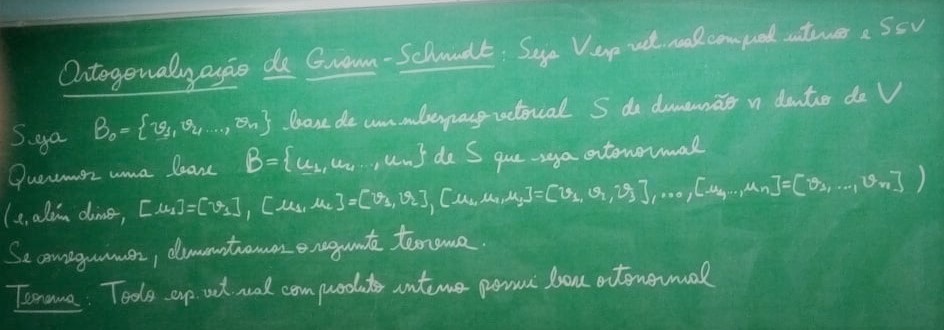 Ortogonalização de Gram-Schmidt: Seja V esp. vet. real com prod. interno e S≤V
Seja B₀ = {v₁, v₂, ..., vₙ} base de um subespaço vetorial S de dimensão n dentro de V
Queremos uma base B = {u₁, u₂, ..., uₙ} de S que seja ortonormal
(e, além disso, [u₁]=[v₁], [u₁, u₂]=[v₁, v₂], [u₁, u₂, u₃]=[v₁, v₂, v₃], ..., [u₁, ..., uₙ]=[v₁, ..., vₙ])
Se conseguirmos, demonstramos o seguinte teorema.
Teorema: Todo esp. vet. real com produto interno possui base ortonormal